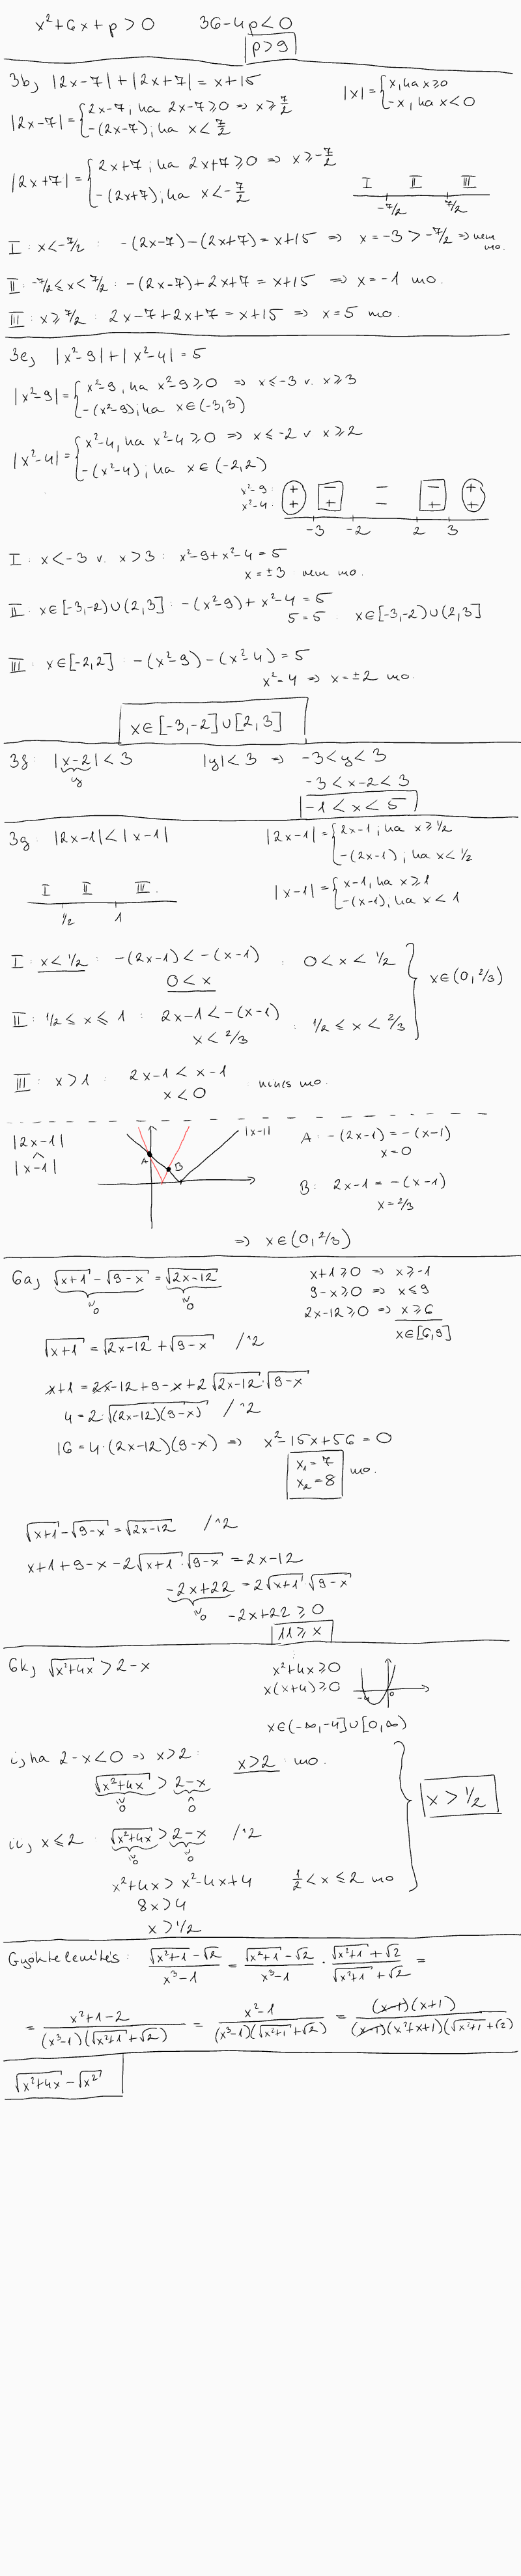 x²+6x+p>0    36-4p<0
p>9
3b, |2x-7|+|2x+7|=x+15    |x|={x, ha x≥0
-x, ha x<0
|2x-7|={2x-7, ha 2x-7≥0 ⇒ x≥7/2
-(2x-7), ha x<7/2
|2x+7|={2x+7, ha 2x+7≥0 ⇒ x≥-7/2
-(2x+7), ha x<-7/2
I II III
-7/2 7/2
I: x<-7/2: -(2x-7)-(2x+7)=x+15 ⇒ x=-3>-7/2 ⇒ nem mo.
II: -7/2≤x<7/2: -(2x-7)+2x+7=x+15 ⇒ x=-1 mo.
III: x≥7/2: 2x-7+2x+7=x+15 ⇒ x=5 mo.
3e, |x²-9|+|x²-4|=5
|x²-9|={x²-9, ha x²-9≥0 ⇒ x≤-3 v. x≥3
-(x²-9), ha x∈(-3,3)
|x²-4|={x²-4, ha x²-4≥0 ⇒ x≤-2 v x≥2
-(x²-4), ha x∈(-2,2)
x²-9: + - - - +
x²-4: + + - + +
-3 -2 2 3
I: x<-3 v. x>3: x²-9+x²-4=5
x=±3 nem mo.
II: x∈[-3,-2)∪(2,3]: -(x²-9)+x²-4=5
5=5. x∈[-3,-2)∪(2,3]
III: x∈[-2,2]: -(x²-9)-(x²-4)=5
x²=4 ⇒ x=±2 mo.
x∈[-3,-2]∪[2,3]
3f: |x-2|<3    |y|<3 ⇒ -3<y<3
y
-3<x-2<3
-1<x<5
3g: |2x-1|<|x-1|    |2x-1|={2x-1, ha x≥1/2
-(2x-1), ha x<1/2
I II III    |x-1|={x-1, ha x≥1
1/2 1    -(x-1), ha x<1
I: x<1/2: -(2x-1)<-(x-1) : 0<x<1/2
0<x
x∈(0,2/3)
II: 1/2≤x≤1: 2x-1<-(x-1) : 1/2≤x<2/3
x<2/3
III: x>1: 2x-1<x-1
x<0 nincs mo.
|2x-1|    |x-1|    A: -(2x-1)=-(x-1)
^    A    x=0
|x-1|    B    B: 2x-1=-(x-1)
x=2/3
⇒ x∈(0,2/3)
6a, √(x+1)-√(9-x)=√(2x-12)    x+1≥0 ⇒ x≥-1
≥0 ≥0    9-x≥0 ⇒ x≤9
2x-12≥0 ⇒ x≥6
x∈[6,9]
√(x+1)=√(2x-12)+√(9-x) /^2
x+1=2x-12+9-x+2√(2x-12)·√(9-x)
4=2·√((2x-12)(9-x)) /^2
16=4·(2x-12)(9-x) ⇒ x²-15x+56=0
x₁=7
x₂=8 mo.
√(x+1)-√(9-x)=√(2x-12) /^2
x+1+9-x-2√(x+1)·√(9-x)=2x-12
-2x+22=2√(x+1)·√(9-x)
≥0 -2x+22≥0
11≥x
6k, √(x²+4x)>2-x    x²+4x≥0
x(x+4)≥0    -4 0
x∈(-∞,-4]∪[0,∞)
i, ha 2-x<0 ⇒ x>2:    x>2 : mo.
√(x²+4x)>2-x
≥0 <0
x>1/2
ii, x≤2: √(x²+4x)>2-x /^2
≥0 ≥0
x²+4x>x²-4x+4    1/2<x≤2 mo
8x>4
x>1/2
Gyöktelenítés: (√(x²+1)-√2)/(x³-1) = (√(x²+1)-√2)/(x³-1) · (√(x²+1)+√2)/(√(x²+1)+√2) =
= (x²+1-2)/((x³-1)(√(x²+1)+√2)) = (x²-1)/((x³-1)(√(x²+1)+√2)) = ((x-1)(x+1))/((x-1)(x²+x+1)(√(x²+1)+√2))
√(x²+4x)-√(x²)